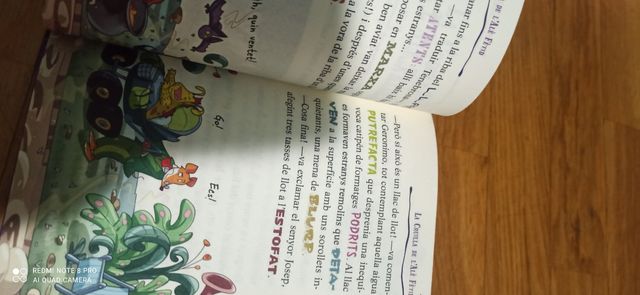 DE L'ALÈ FÈTID
nar fins a la riba del
—va traduir Tenebrosa
ATENTS
s estranys
allí baix
posar en MARXA
ben aviat van deixar
s!) i després d'unes
a la vora de la
h, quin ventet!
LA CRUÏLLA DE L'ALÈ FÈTID
—Però si això és un llac de llot! —va comen-
tar Geronimo, tot contemplant aquella aigua
PUTREFACTA que desprenia una inequí-
voca catipén de formatges PODRITS. Al llac
es formaven estranys remolins que PETA-
VEN a la superfície amb uns sorollets in-
quietants, una mena de BLURP.
—Cosa fina! —va exclamar el senyor Josep,
afegint tres tasses de llot a l'ESTOFAT.
Go!
Ecs!
REDMI NOTE 8 PRO
AI QUAD CAMERA